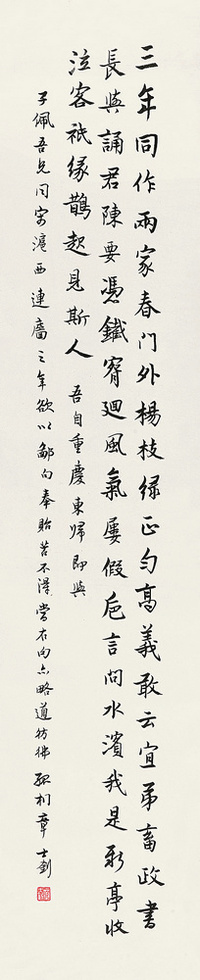 三年同作兩家春門外楊枝綠正勻高義敢云宜弟畜政書
長與誦君陳要憑鐵腎迴風氣屢假卮言問水濱我是新亭收
泣客祇緣鵲起見斯人 吾自重慶東歸即與
子佩吾兄同寓滬西連廧三年欲以鄙句奉貽苦不得當右向亦略道彷彿孤桐章士釗